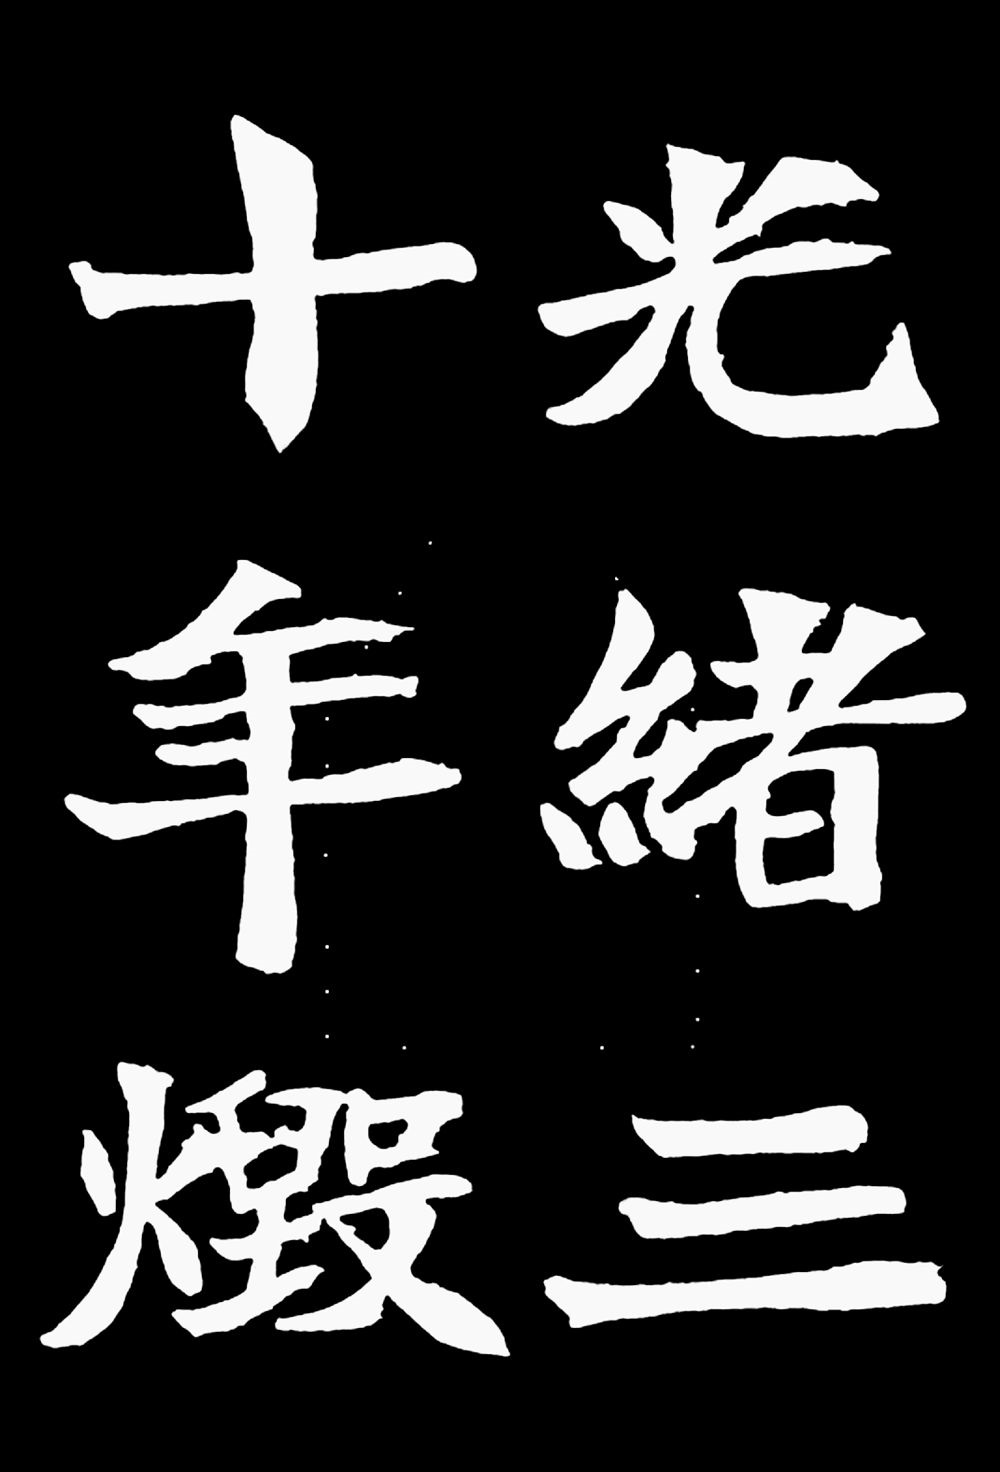 光緒三
十年燬